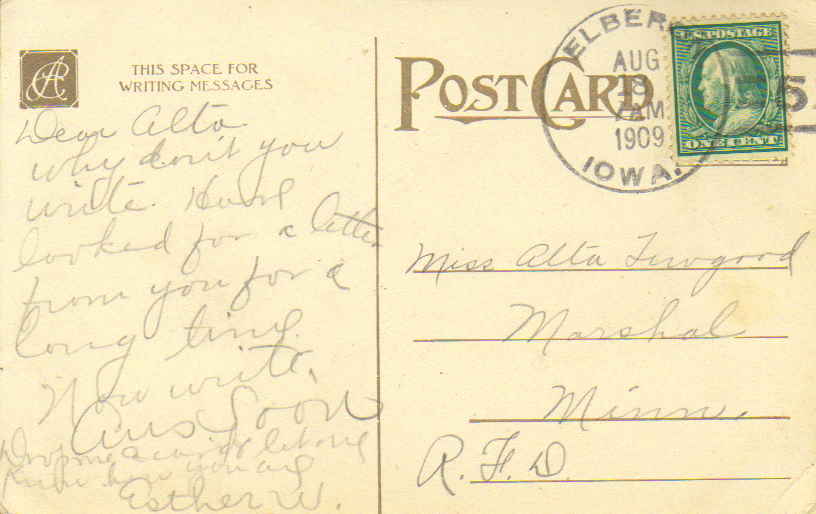 THIS SPACE FOR
WRITING MESSAGES
Dear Alta
why don't you
write. Have
looked for a letter
from you for a
long time
Now write.
Ans Soon
Drop me a card & let me
know how you are
Esther W.
POST CARD
ELBER
AUG
7 AM
1909
IOWA.
U.S. POSTAGE
ONE CENT
Miss Alta Twogood
Marshal
Minn.
R.F.D.